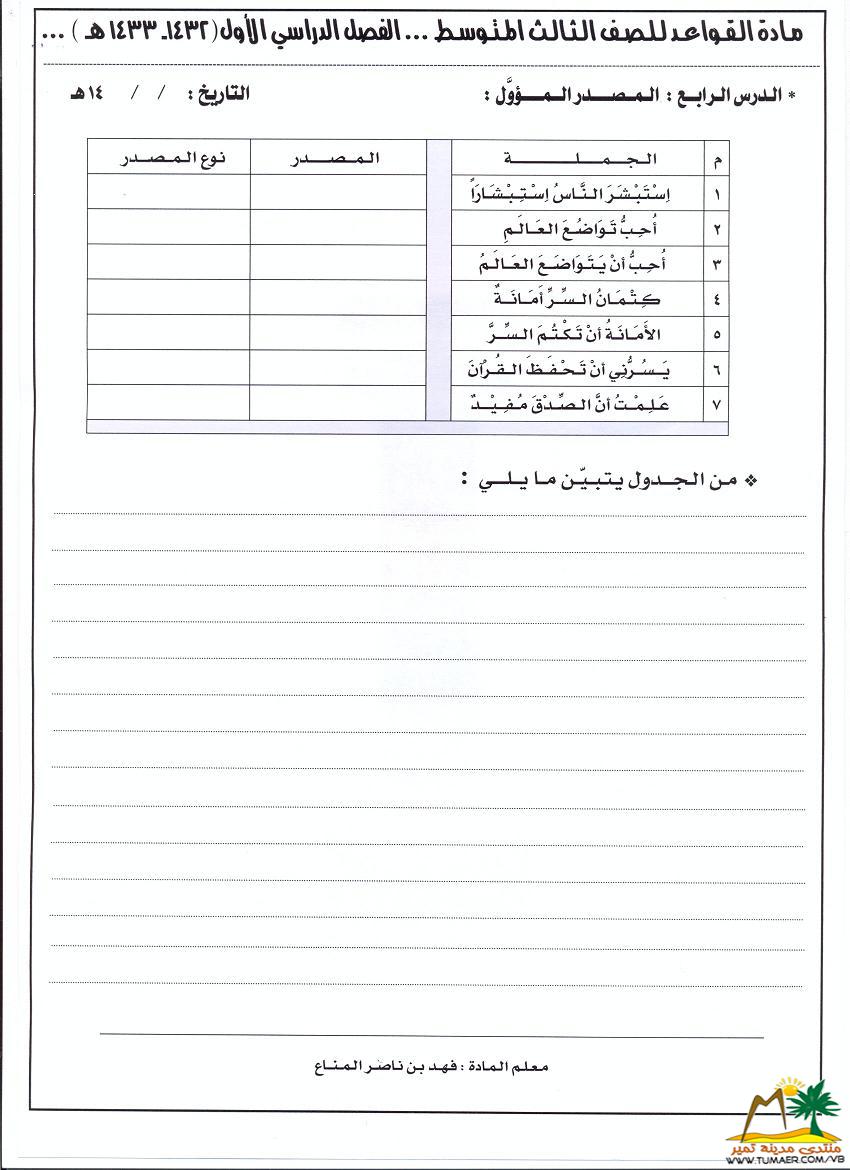 مادة القواعد للصف الثالث المتوسط ... الفصل الدراسي الأول (١٤٣٢ـ ١٤٣٣ هـ ) ...
* الدرس الرابع : المصدر المؤوَّل : التاريخ : / / ١٤هـ
م الجملة المصدر نوع المصدر
١ اِسْتَبْشَرَ النَّاسُ اِسْتِبْشَارَاً
٢ أُحِبُّ تَوَاضُعَ العَالَمِ
٣ أُحِبُّ أنْ يَتَوَاضَعَ العَالَمُ
٤ كِتْمَانُ السِّرِّ أَمَانَةٌ
٥ الأَمَانَةُ أنْ تَكْتُمَ السِّرَّ
٦ يَسُرُّنِي أنْ تَحْفَظَ القُرْآنَ
٧ عَلِمْتُ أنَّ الصِّدْقَ مُفِيْدٌ
❖ من الجدول يتبيّن ما يلي :
معلم المادة : فهد بن ناصر المناع
منتدى مدينة تمير
WWW.TUMAER.COM/VB